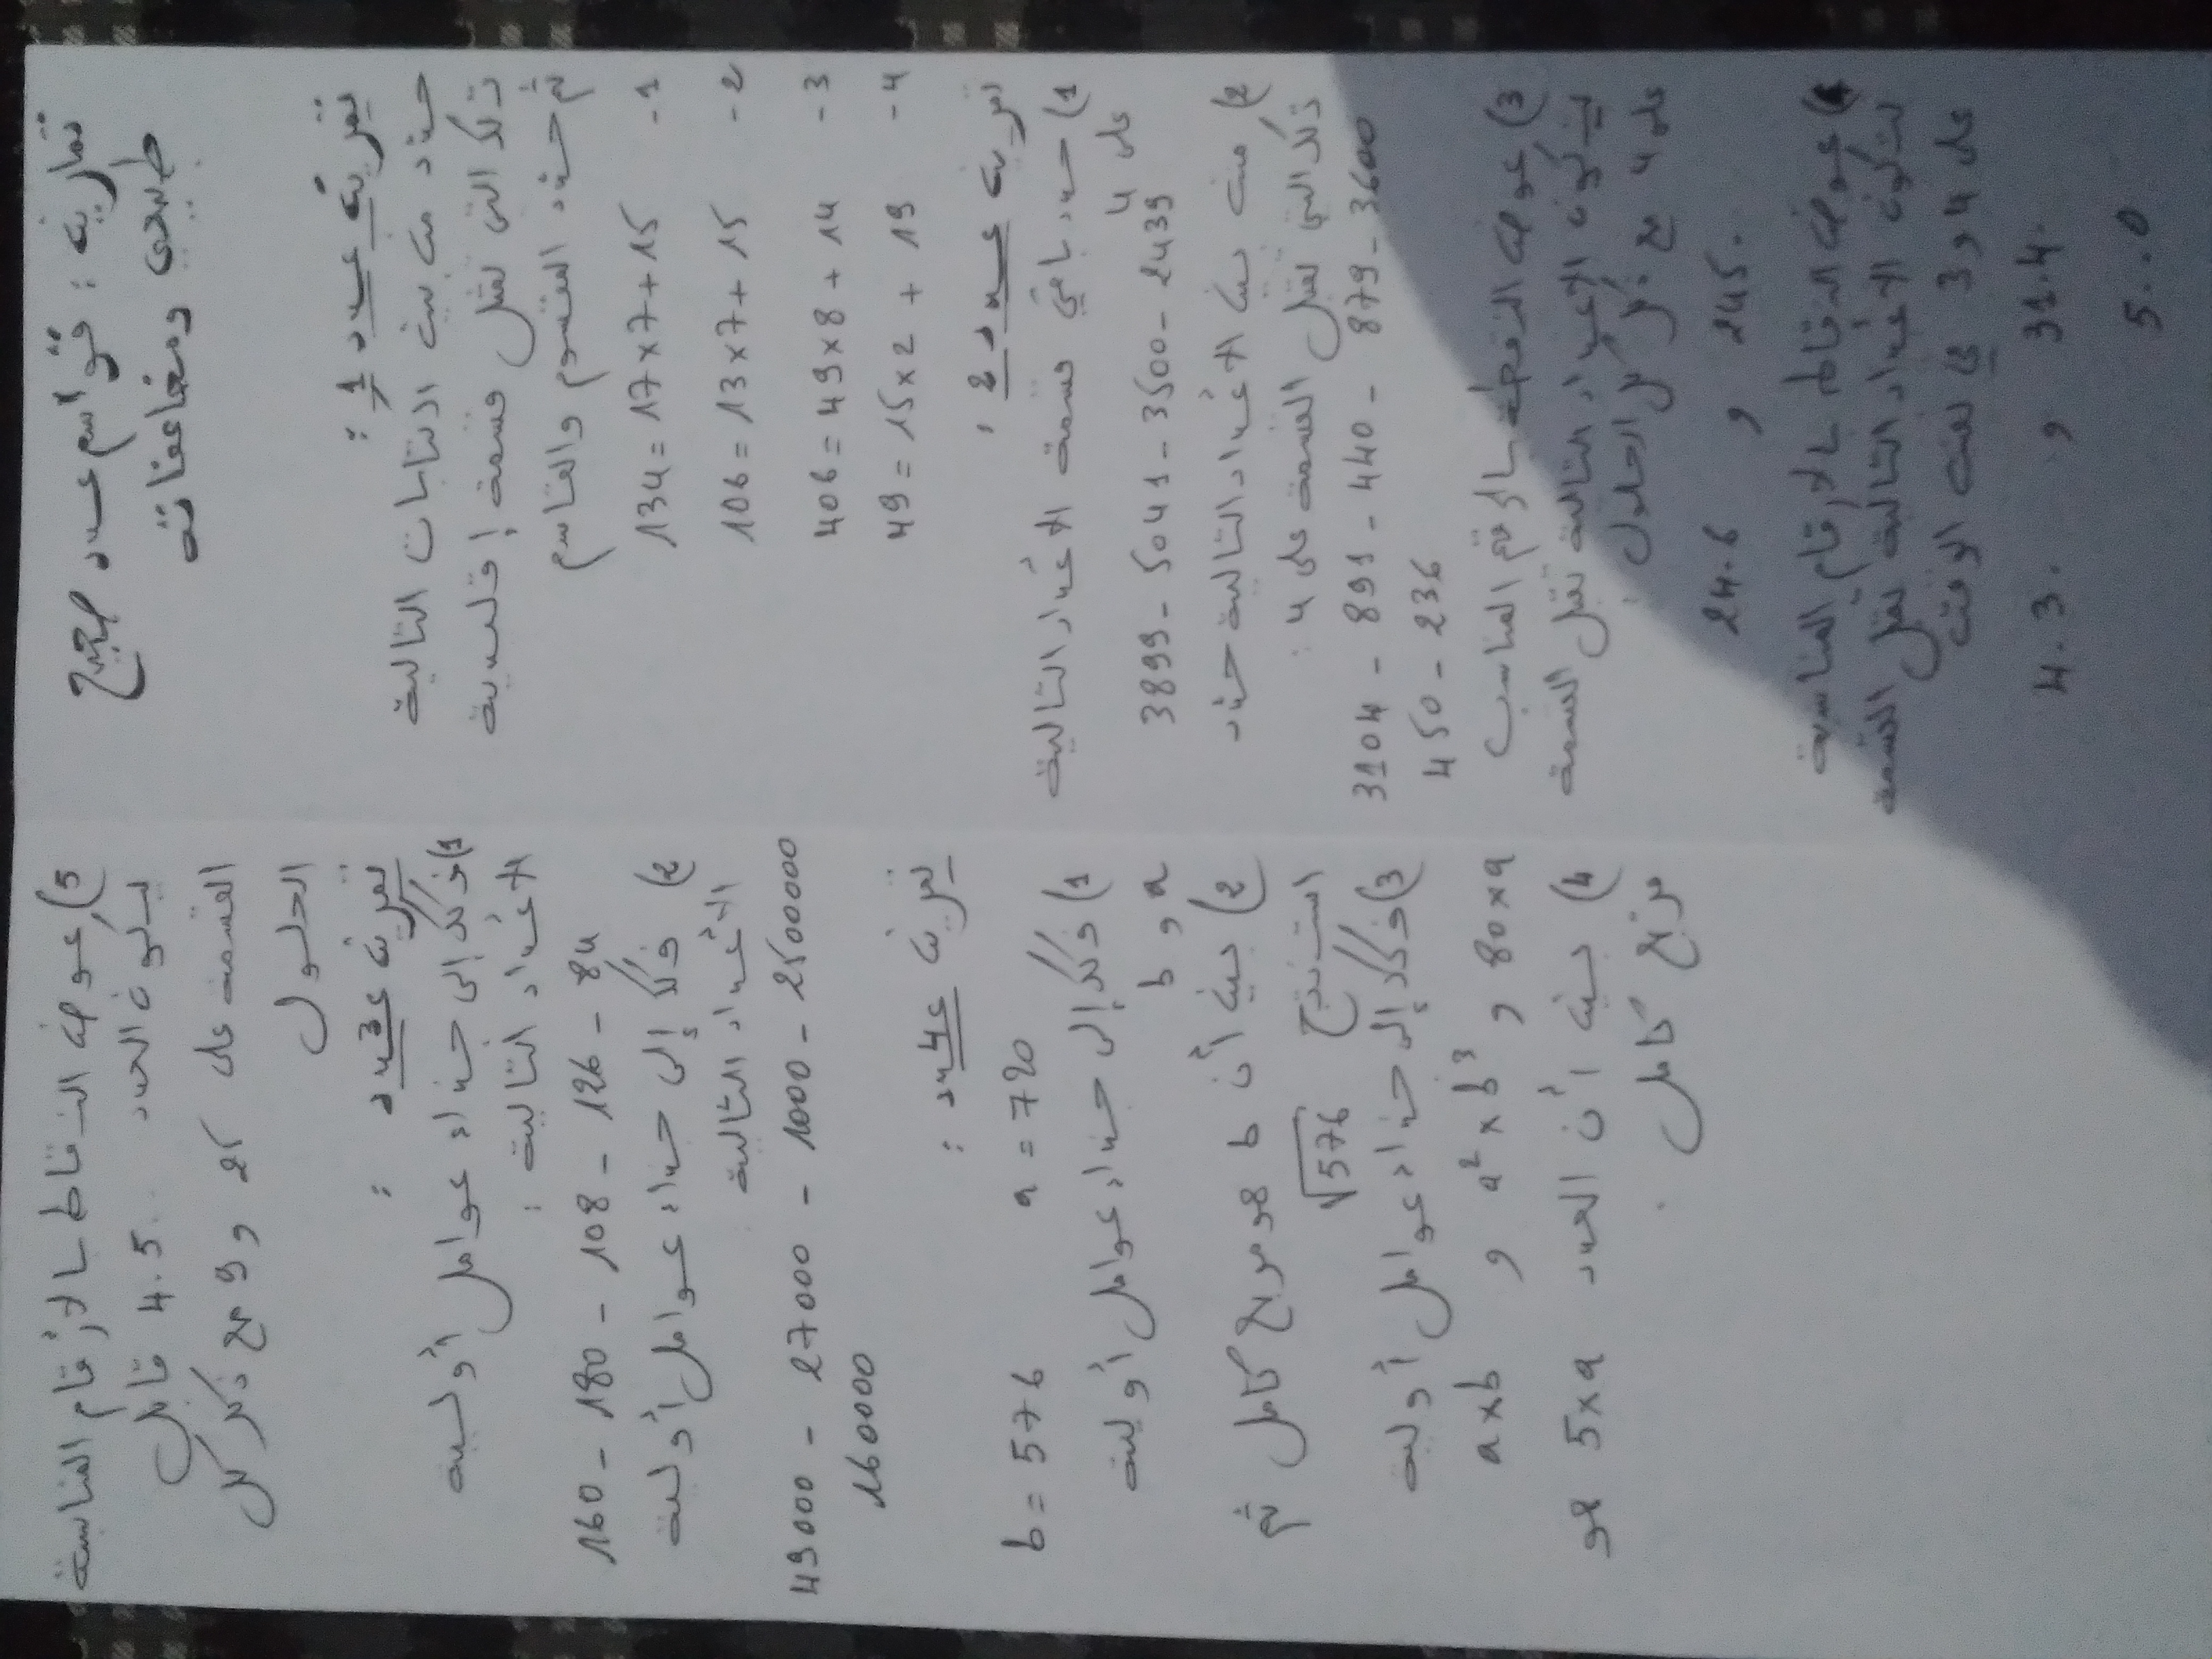 تمارين : قواسم عدد صحيح
طبيعي ومضاعفاته
تمرين عدد 1 :
حدد من بين الكتابات التالية
تلك التي تمثل قسمة إقليدية
ثم حدد المقسوم والقاسم
1 - 134 = 17 x 7 + 15
2 - 106 = 13 x 7 + 15
3 - 406 = 49 x 8 + 14
4 - 49 = 15 x 2 + 19
تمرين عدد 2 :
1) حدد باقي قسمة الأعداد التالية
على 4
3899 - 5041 - 3500 - 2439
2) من بين الأعداد التالية حدد
تلك التي تقبل القسمة على 4 :
3104 - 891 - 440 - 879 - 3600
450 - 236
3) عوض النقطة بالرقم المناسب
ليكون الأعداد التالية تقبل القسمة
على 4 مع ذكر كل الحلول :
24.6 و 245.
4) عوض النقاط بالأرقام المناسبة
لتكون الأعداد التالية تقبل القسمة
على 4 و 3 في نفس الوقت
4.3. و 31.4.
5..0
5) عوض النقاط بالأرقام المناسبة
ليكون العدد 4.5. قابل
القسمة على 25 و 9 مع ذكر كل
الحلول
تمرين عدد 3 :
1) فكك إلى جذاء عوامل أولية
الأعداد التالية :
160 - 180 - 108 - 126 - 84
2) فكك إلى جذاء عوامل أولية
الأعداد التالية
49000 - 27000 - 1000 - 2500000
1600000
تمرين عدد 4 :
b = 576 a = 720
1) فكك إلى جذاء عوامل أولية
a و b
2) بين أن b هو مربع كامل ثم
استنتج √576
3) فكك إلى جذاء عوامل أولية
a x b و a² x b³ و 80 x a
4) بين أن العدد 5 x a هو
مربع كامل .